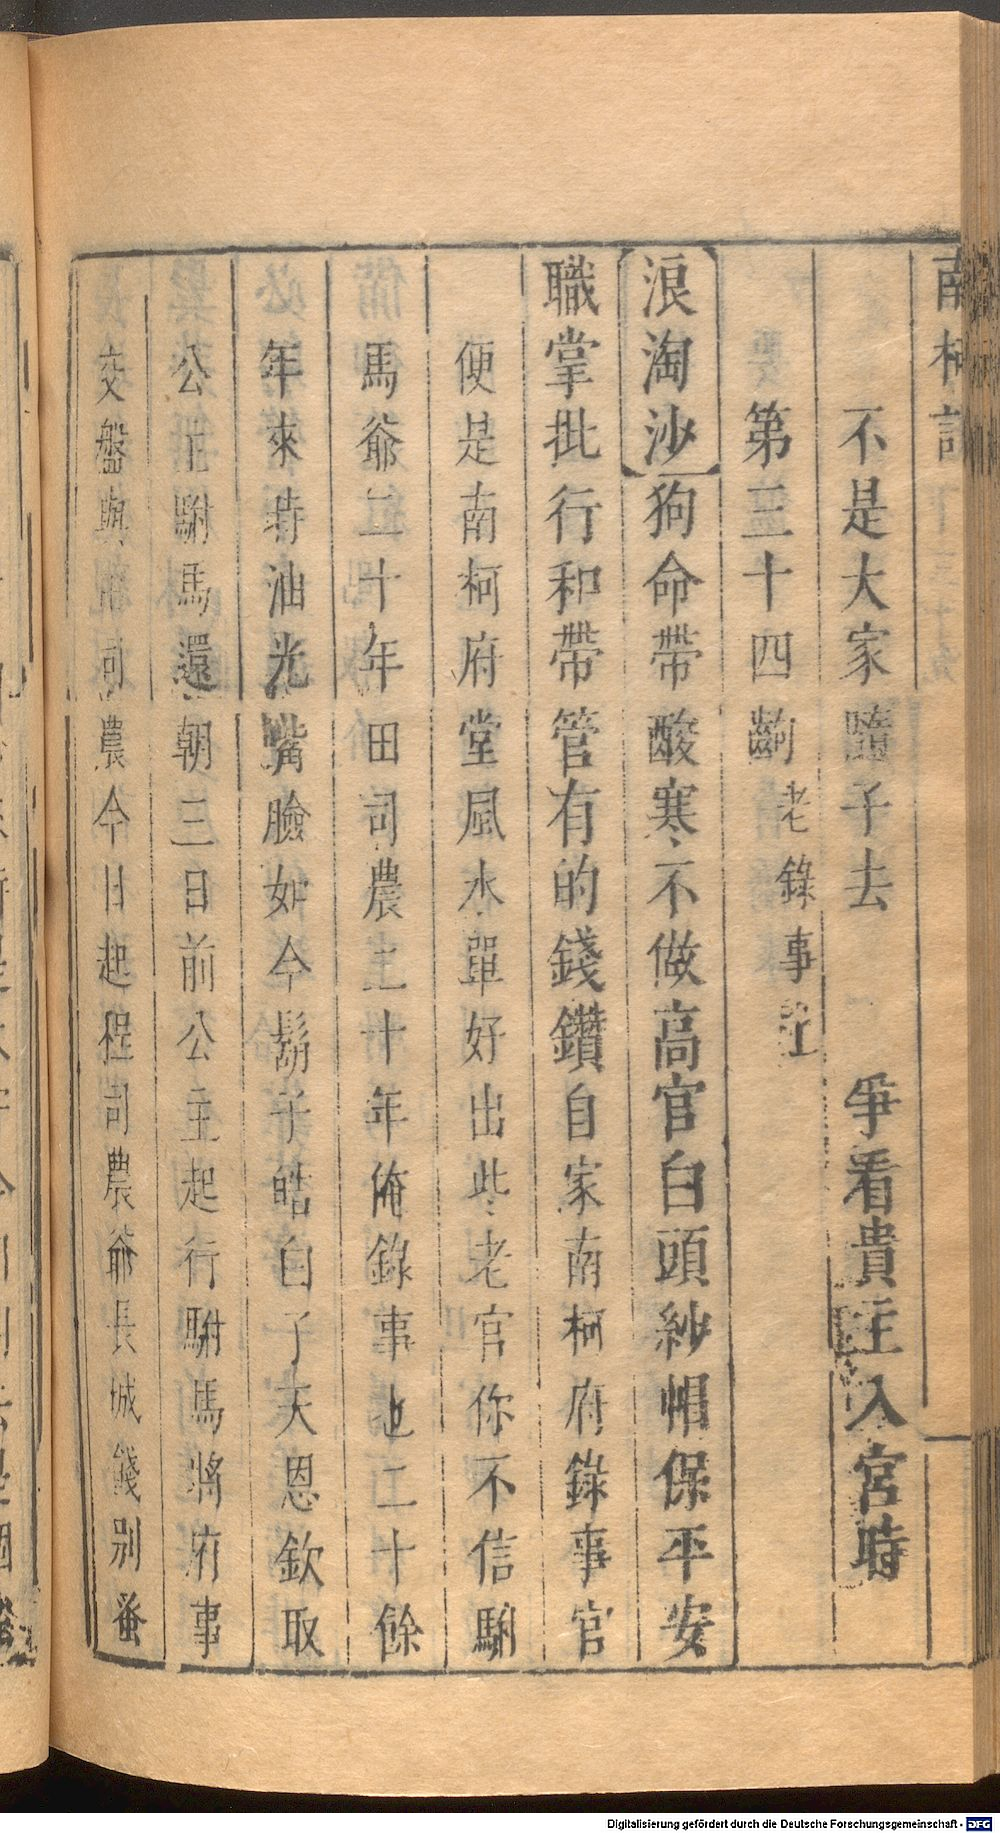 南柯記
不是大家隨子去　爭看貴主入宮時
第三十四齣　老錄事上
【浪淘沙】狗命帶酸寒不做高官白頭紗帽保平安
職掌批行和帶管有的錢鑽自家南柯府錄事官
便是南柯府堂風水單好出些老官你不信駙
馬爺二十年田司農二十年俺錄事也二十餘
年來時油光嘴臉如今鬍子皓白了天恩欽取
公主駙馬還朝三日前公主起行駙馬將府事
交盤與司農今日起程司農爺長城餞別蚤
Digitalisierung gefördert durch die Deutsche Forschungsgemeinschaft - DFG